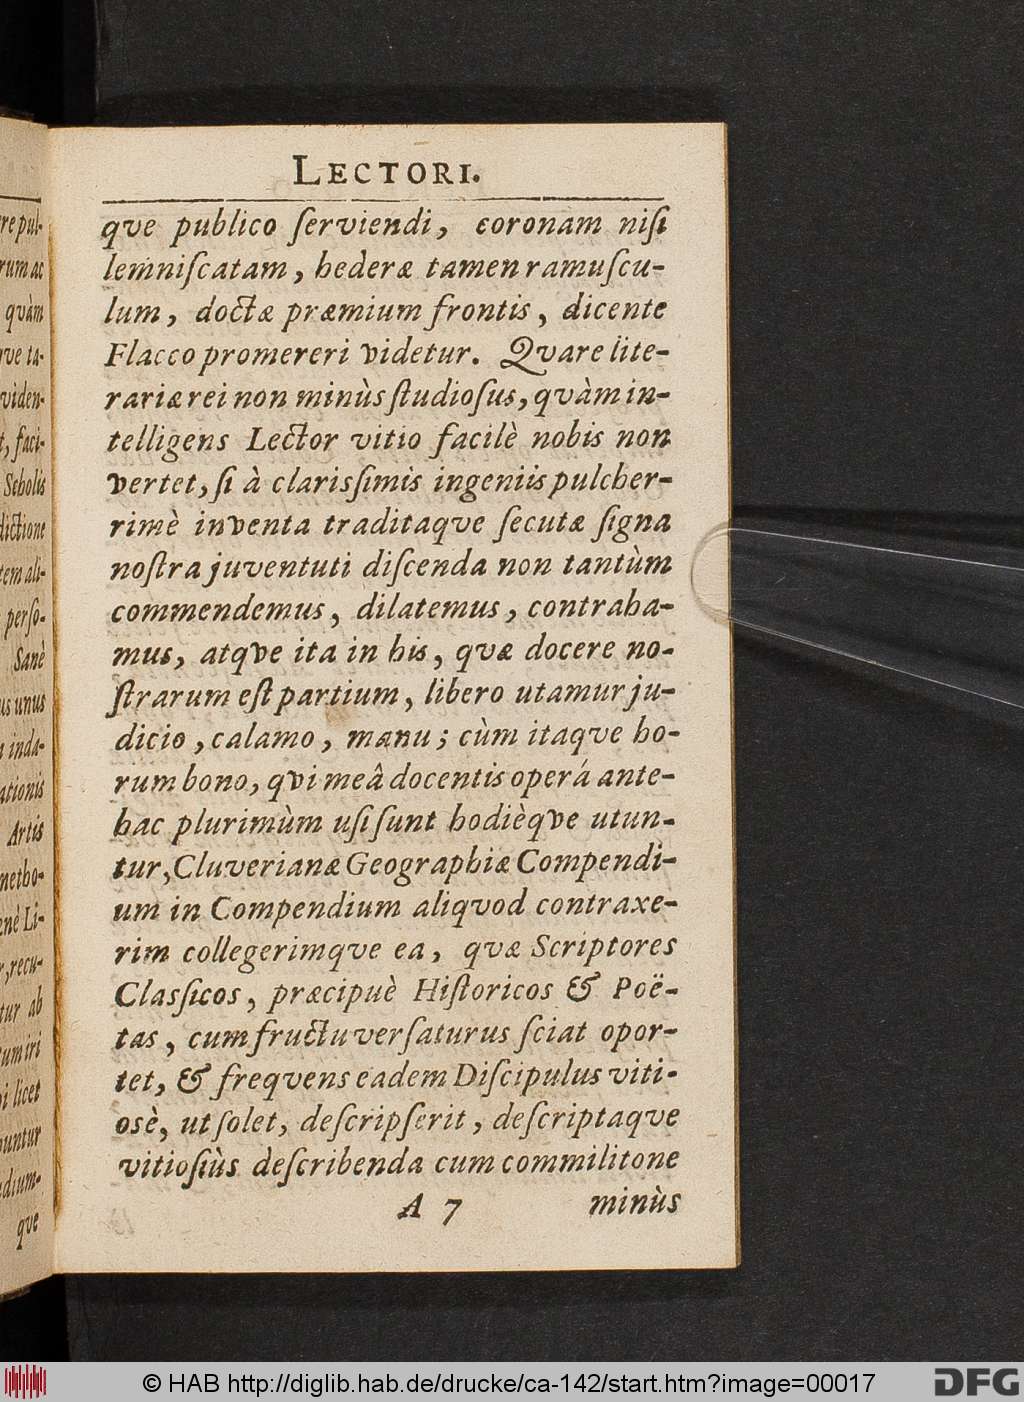 LECTORI.
qve publico ſerviendi, coronam niſi
lemniſcatam, hederæ tamen ramuſcu-
lum, doctæ præmium frontis, dicente
Flacco promereri videtur. Qvare lite-
rariæ rei non minùs ſtudioſus, qvàm in-
telligens Lector vitio facilè nobis non
vertet, ſi à clarisſimis ingeniis pulcher-
rimè inventa traditaqve ſecutæ ſigna
noſtra juventuti diſcenda non tantùm
commendemus, dilatemus, contraha-
mus, atqve ita in his, qvæ docere no-
ſtrarum eſt partium, libero utamur ju-
dicio, calamo, manu; cùm itaqve ho-
rum bono, qvi meâ docentis operá ante-
hac plurimùm uſi ſunt hodièqve utun-
tur, Cluverianæ Geographiæ Compendi-
um in Compendium aliqvod contraxe-
rim collegerimqve ea, qvæ Scriptores
Clasſicos, præcipuè Hiſtoricos & Poë-
tas, cum fructu verſaturus ſciat opor-
tet, & freqvens eadem Diſcipulus viti-
osè, ut ſolet, deſcripſerit, deſcriptaqve
vitioſiùs deſcribenda cum commilitone
A 7 minùs
re pul-
rum ac
qvàm
qve ta-
viden-
t, faci-
Scholis
dictione
tem ali-
perſo-
Sanè
us unus
inda-
ationis
Artis
metho-
enè Li-
r, recu-
tur ab
cum iri
licet
buntur
dium-
qve
© HAB http://diglib.hab.de/drucke/ca-142/start.htm?image=00017
DFG